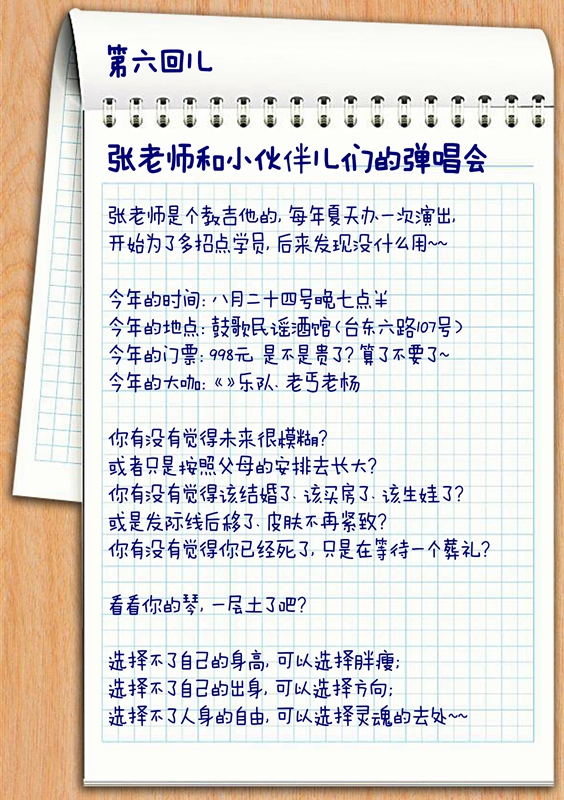 第六回儿
张老师和小伙伴儿们的弹唱会
张老师是个教吉他的, 每年夏天办一次演出,
开始为了多招点学员, 后来发现没什么用~~
今年的时间: 八月二十四号晚七点半
今年的地点: 鼓歌民谣酒馆(台东六路107号)
今年的门票: 998元. 是不是贵了? 算了不要了~
今年的大咖: 《 》乐队. 老丐老杨
你有没有觉得未来很模糊?
或者只是按照父母的安排去长大?
你有没有觉得该结婚了. 该买房了. 该生娃了?
或是发际线后移了. 皮肤不再紧致?
你有没有觉得你已经死了, 只是在等待一个葬礼?
看看你的琴, 一层土了吧?
选择不了自己的身高, 可以选择胖瘦;
选择不了自己的出身, 可以选择方向;
选择不了人身的自由, 可以选择灵魂的去处~~